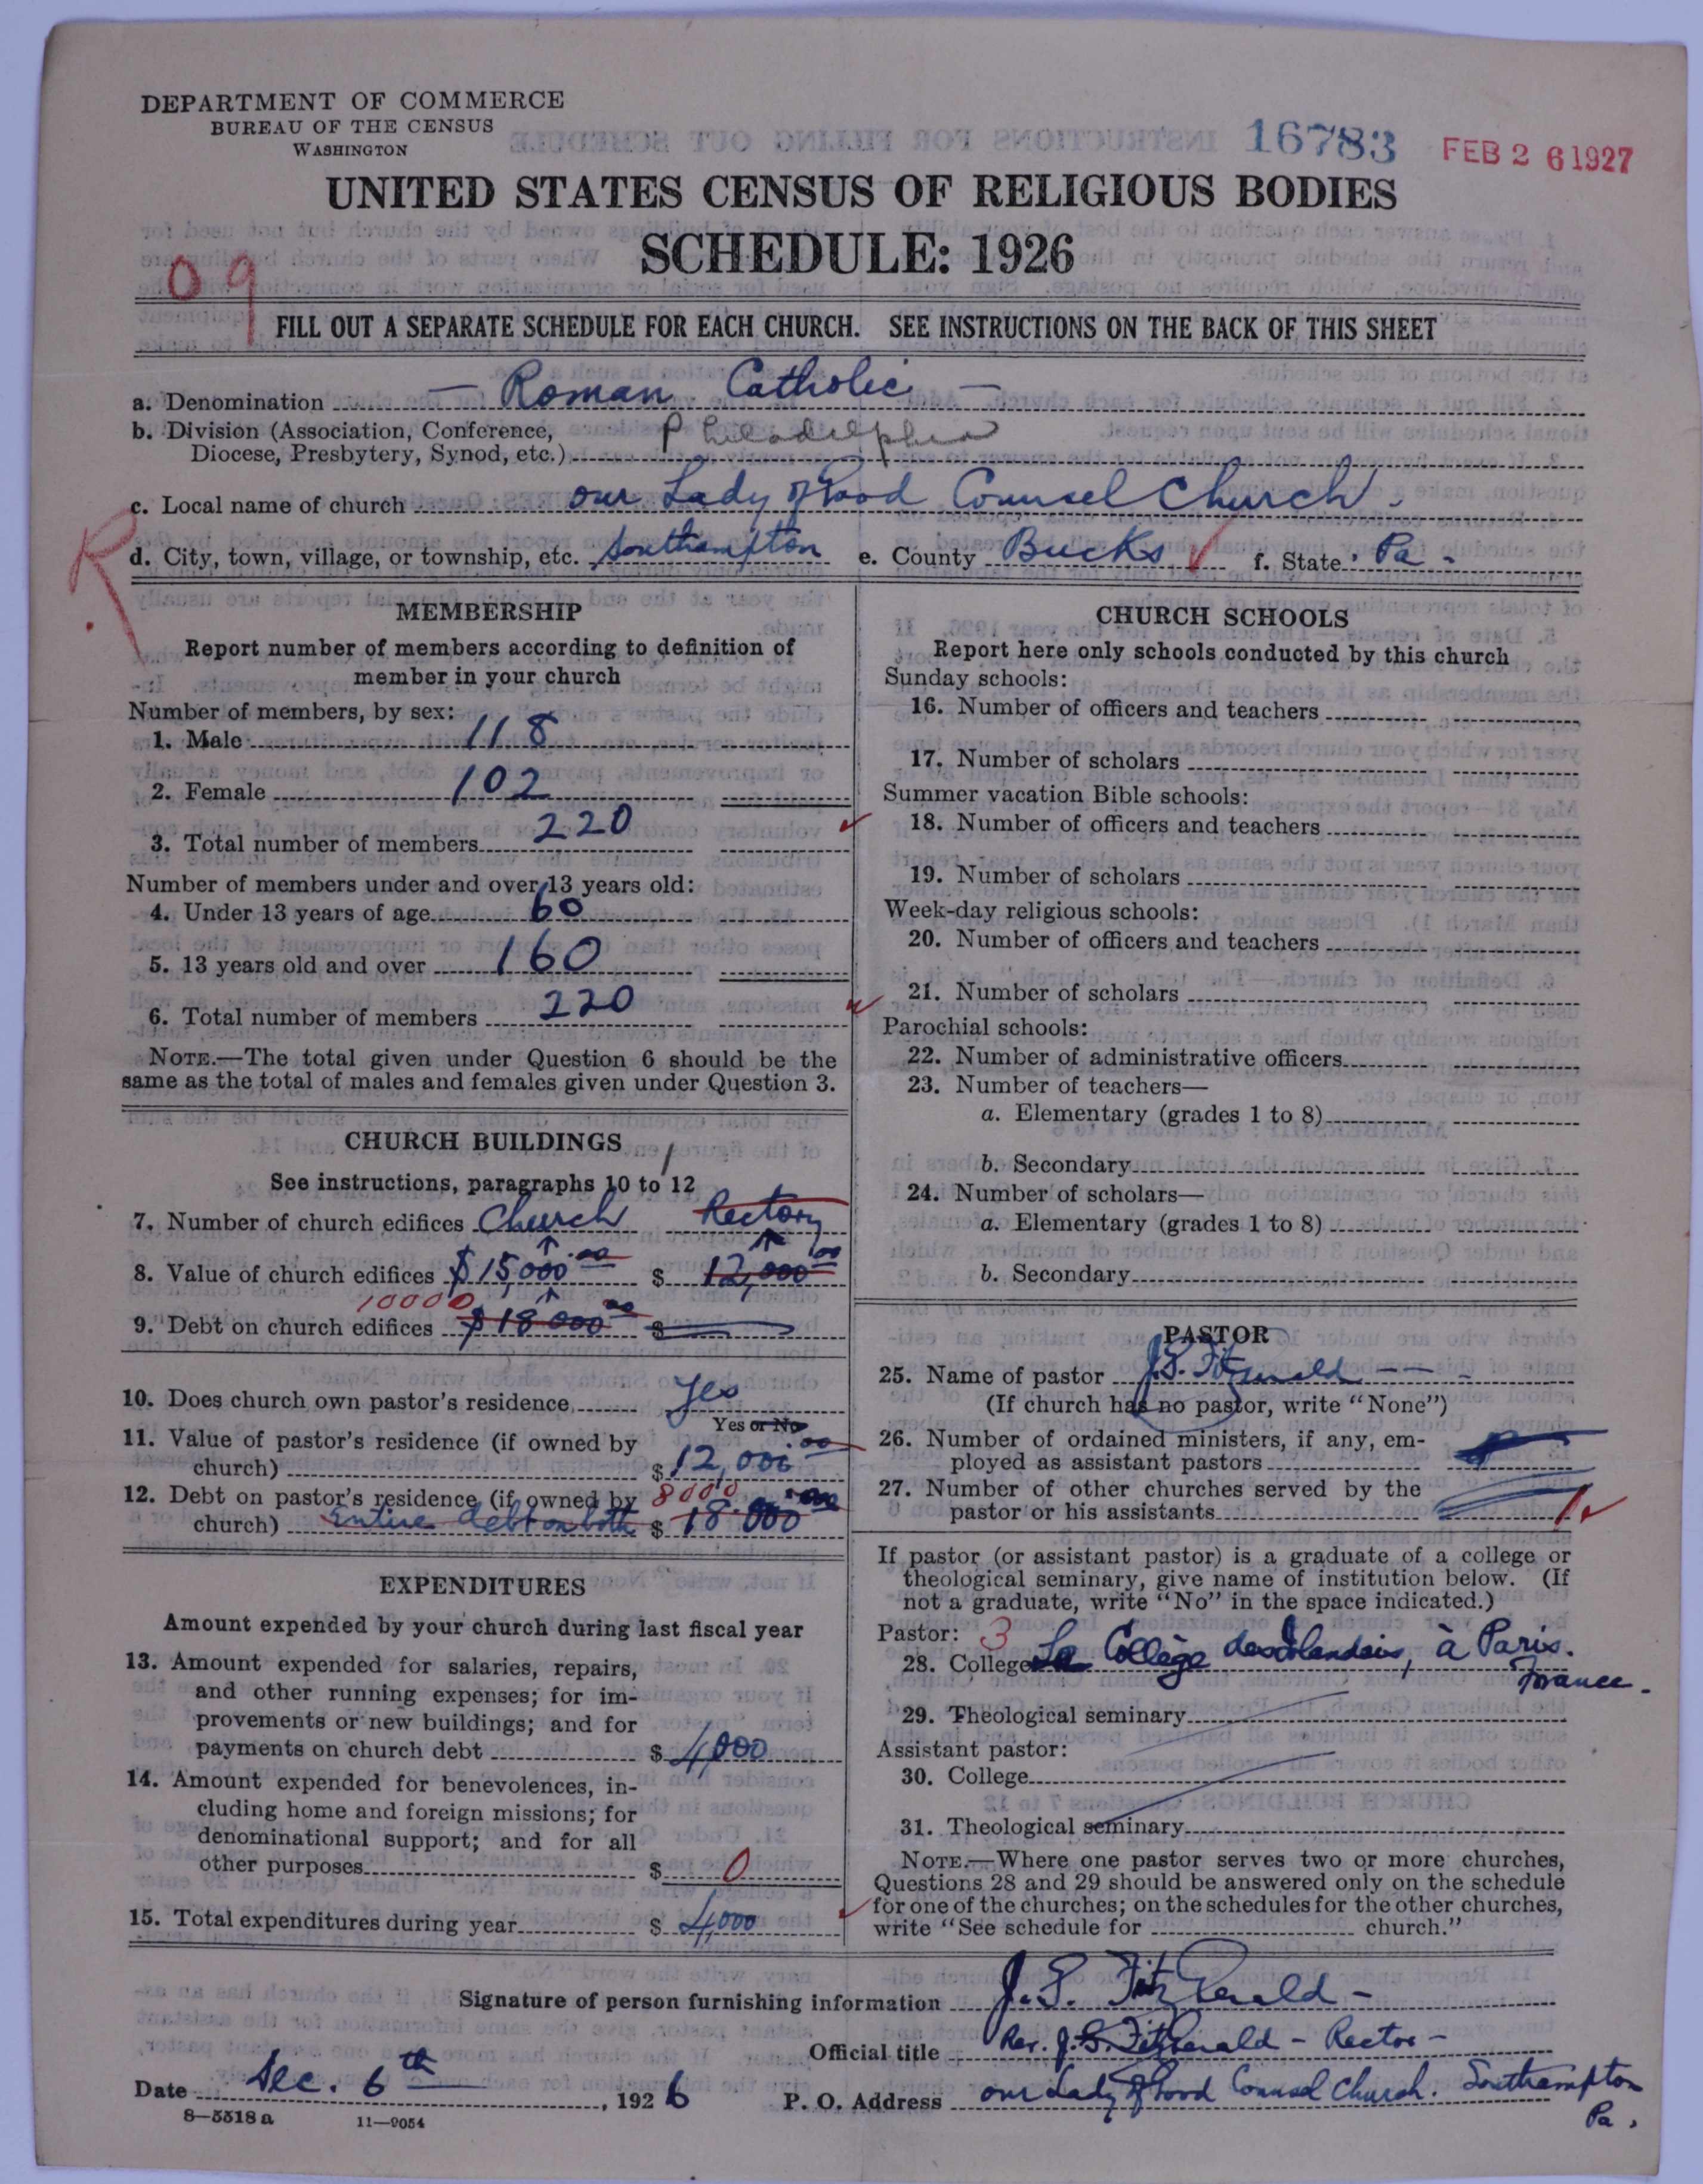 DEPARTMENT OF COMMERCE
BUREAU OF THE CENSUS
WASHINGTON
16783 FEB 26 1927
UNITED STATES CENSUS OF RELIGIOUS BODIES
SCHEDULE: 1926
09
FILL OUT A SEPARATE SCHEDULE FOR EACH CHURCH. SEE INSTRUCTIONS ON THE BACK OF THIS SHEET
a. Denomination — Roman Catholic —
b. Division (Association, Conference, Philadelphia
Diocese, Presbytery, Synod, etc.)
c. Local name of church our Lady of Good Counsel Church.
R
d. City, town, village, or township, etc. Southampton e. County Bucks f. State Pa.
MEMBERSHIP
Report number of members according to definition of
member in your church
Number of members, by sex:
1. Male 118
2. Female 102
3. Total number of members 220
Number of members under and over 13 years old:
4. Under 13 years of age 60
5. 13 years old and over 160
6. Total number of members 220
NOTE.—The total given under Question 6 should be the
same as the total of males and females given under Question 3.
CHURCH BUILDINGS
See instructions, paragraphs 10 to 12
1
7. Number of church edifices Church Rectory
8. Value of church edifices $15,000.00 $ 12,000.00
10000
9. Debt on church edifices $18000.00 $
10. Does church own pastor's residence yes
Yes or No
11. Value of pastor's residence (if owned by
church) $12,000.00
12. Debt on pastor's residence (if owned by 8000
church) Entire debt on both $ 18.000.00
EXPENDITURES
Amount expended by your church during last fiscal year
13. Amount expended for salaries, repairs,
and other running expenses; for im-
provements or new buildings; and for
payments on church debt $ 4,000
14. Amount expended for benevolences, in-
cluding home and foreign missions; for
denominational support; and for all
other purposes $ 0
15. Total expenditures during year $ 4,000
CHURCH SCHOOLS
Report here only schools conducted by this church
Sunday schools:
16. Number of officers and teachers
17. Number of scholars
Summer vacation Bible schools:
18. Number of officers and teachers
19. Number of scholars
Week-day religious schools:
20. Number of officers and teachers
21. Number of scholars
Parochial schools:
22. Number of administrative officers
23. Number of teachers—
a. Elementary (grades 1 to 8)
b. Secondary
24. Number of scholars—
a. Elementary (grades 1 to 8)
b. Secondary
PASTOR
25. Name of pastor J.S. Fitzgerald — —
(If church has no pastor, write "None")
26. Number of ordained ministers, if any, em-
ployed as assistant pastors
27. Number of other churches served by the
pastor or his assistants 1
If pastor (or assistant pastor) is a graduate of a college or
theological seminary, give name of institution below. (If
not a graduate, write "No" in the space indicated.)
Pastor: 3
28. College Le Collège des Irlandais, à Paris.
France.
29. Theological seminary
Assistant pastor:
30. College
31. Theological seminary
NOTE.—Where one pastor serves two or more churches,
Questions 28 and 29 should be answered only on the schedule
for one of the churches; on the schedules for the other churches,
write "See schedule for church."
Signature of person furnishing information J.S. FitzGerald —
Official title Rev. J.S. FitzGerald — Rector —
Date Dec. 6th, 1926 P. O. Address our Lady of Good Counsel Church. Southampton
Pa.
8—5518 a 11—9054